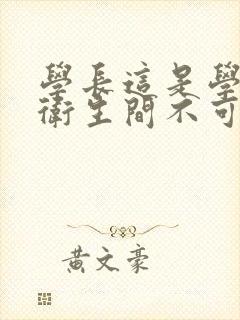 學長這是學
衛生間不可
黃文豪